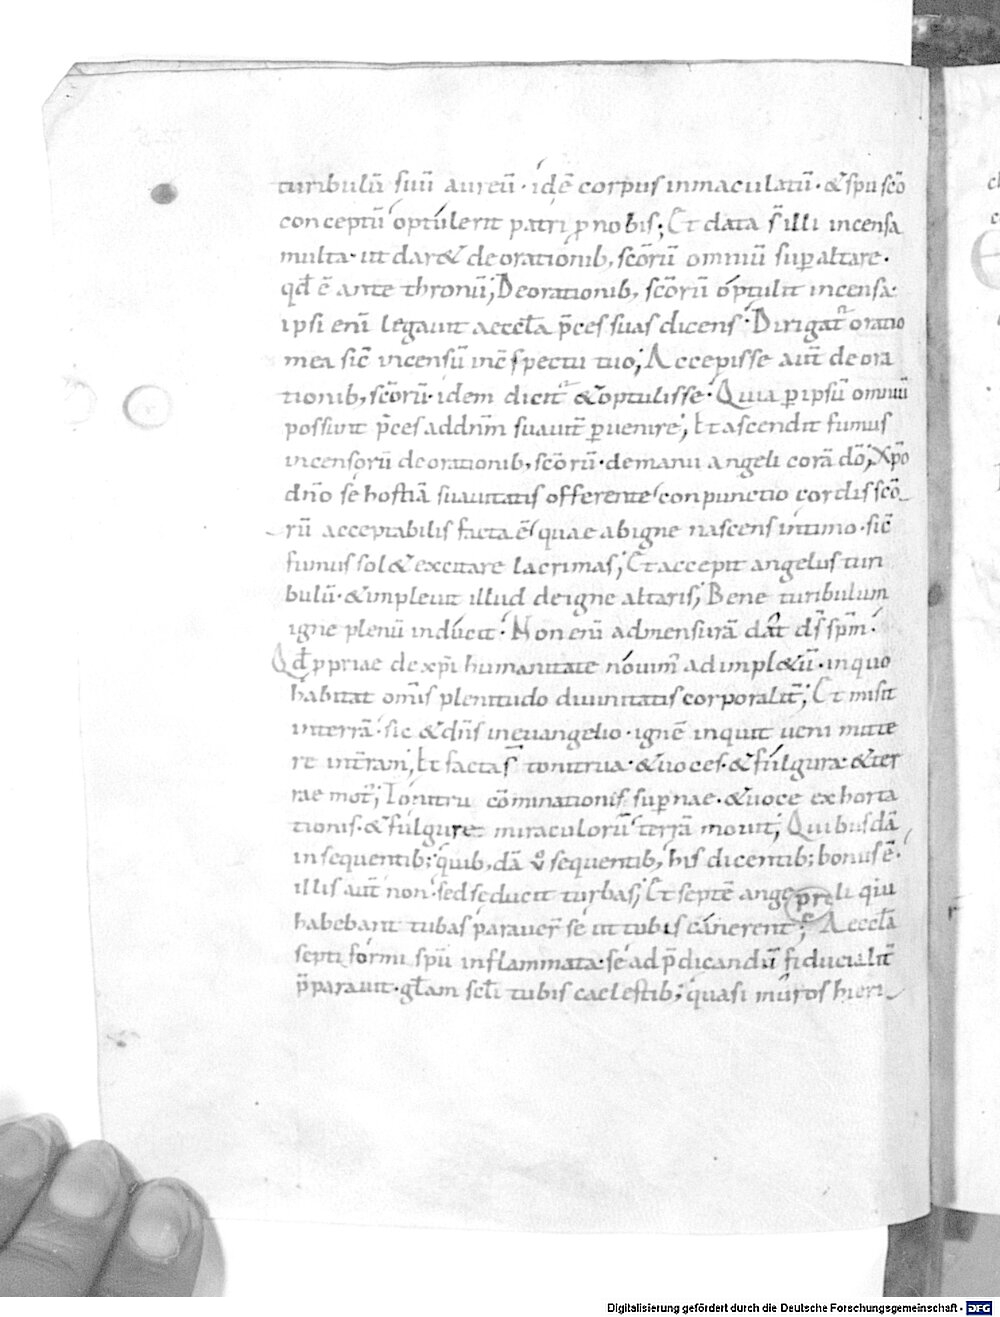 turibulū suū aureū· idē corpus inmaculatū· & spu scō
conceptū optulerit patri p nobis; Et data s̄ illi incensa
multa· ut dar& de orationib; scōrū omniū sup altare·
qđ ē ante thronū; De orationib; scōrū optulit incensa·
ipsi enī legauit aeccła p̄ces suas dicens· Dirigat̄ oratio
mea sic̄ incensū in c̄spectu tuo; Accepisse aut̄ de ora
tionib; scōrū· idem dicit & optulisse· Quia p ipsū omniū
possunt p̄ces ad dnm̄ suauit̄ puenire; Et ascendit fumus
incensorū de orationib; scōrū· de manu angeli corā dō; Xp̄o
dnō se hostiā suauitatis offerente conpunctio cordis scō
rū acceptabilis facta ē quae ab igne nascens intimo· sic̄
fumus sol& excitare lacrimas; Et accepit angelus turi
bulū· & impleuit illud de igne altaris; Bene turibulum
igne plenū inducit· Non enī ad mensurā dat ds̄ spm̄·
Qđ ppriae de xp̄i humanitate nouim̄ adimpl&ū· in quo
habitat omīs plenitudo diuinitatis corporalit̄; Et misit
in terrā· sic & dn̄s in euangelio· ignē inquit ueni mitte
re in t̄ram; Et facta s̄ tonitrua· & uoces· & fulgura & ter
rae mot̄; Tonitru cōminationis sup̄nae· & uoce exhorta
tionis· & fulgure miraculorū terrā mouit; Quibusdā
insequentib; quib;dā ū sequentib; his dicentib; bonus ē·
illis aut̄ non· sed seducit turbas; Et septē angeli qui
pre
habebant tubas p̄parauer̄ se ut tubis canerent; Aeccła
septiformi spū inflammata· se ad p̄dicandū fiducialit̄
p̄parauit· głam scłi tubis caelestib; quasi muros hieri
Digitalisierung gefördert durch die Deutsche Forschungsgemeinschaft · DFG